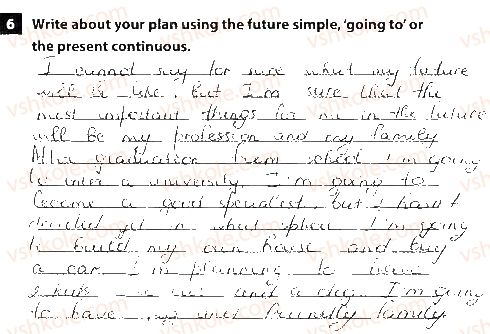 6 Write about your plan using the future simple, 'going to' or
the present continuous.
I cannot say for sure what my future
will be like. But I'm sure that the
most important things for me in the future
will be my profession and my family
After graduation from school I'm going
to enter a university. I'm going to
become a good specialist. But I haven't
decided yet in what sphere I'm going
to build my own house and buy
a car. I'm planning to have
2 kids a cat and a dog. I'm going
to have friendly family